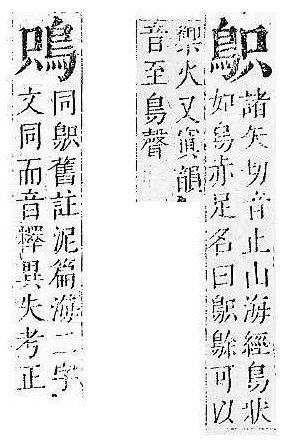 䳅
諸矢切音止山海經鳥狀
如烏赤足名曰䳅鵌可以
禦火又寘韻
音至鳥聲
同䳅舊註泥篇海二字
文同而音釋異失考正